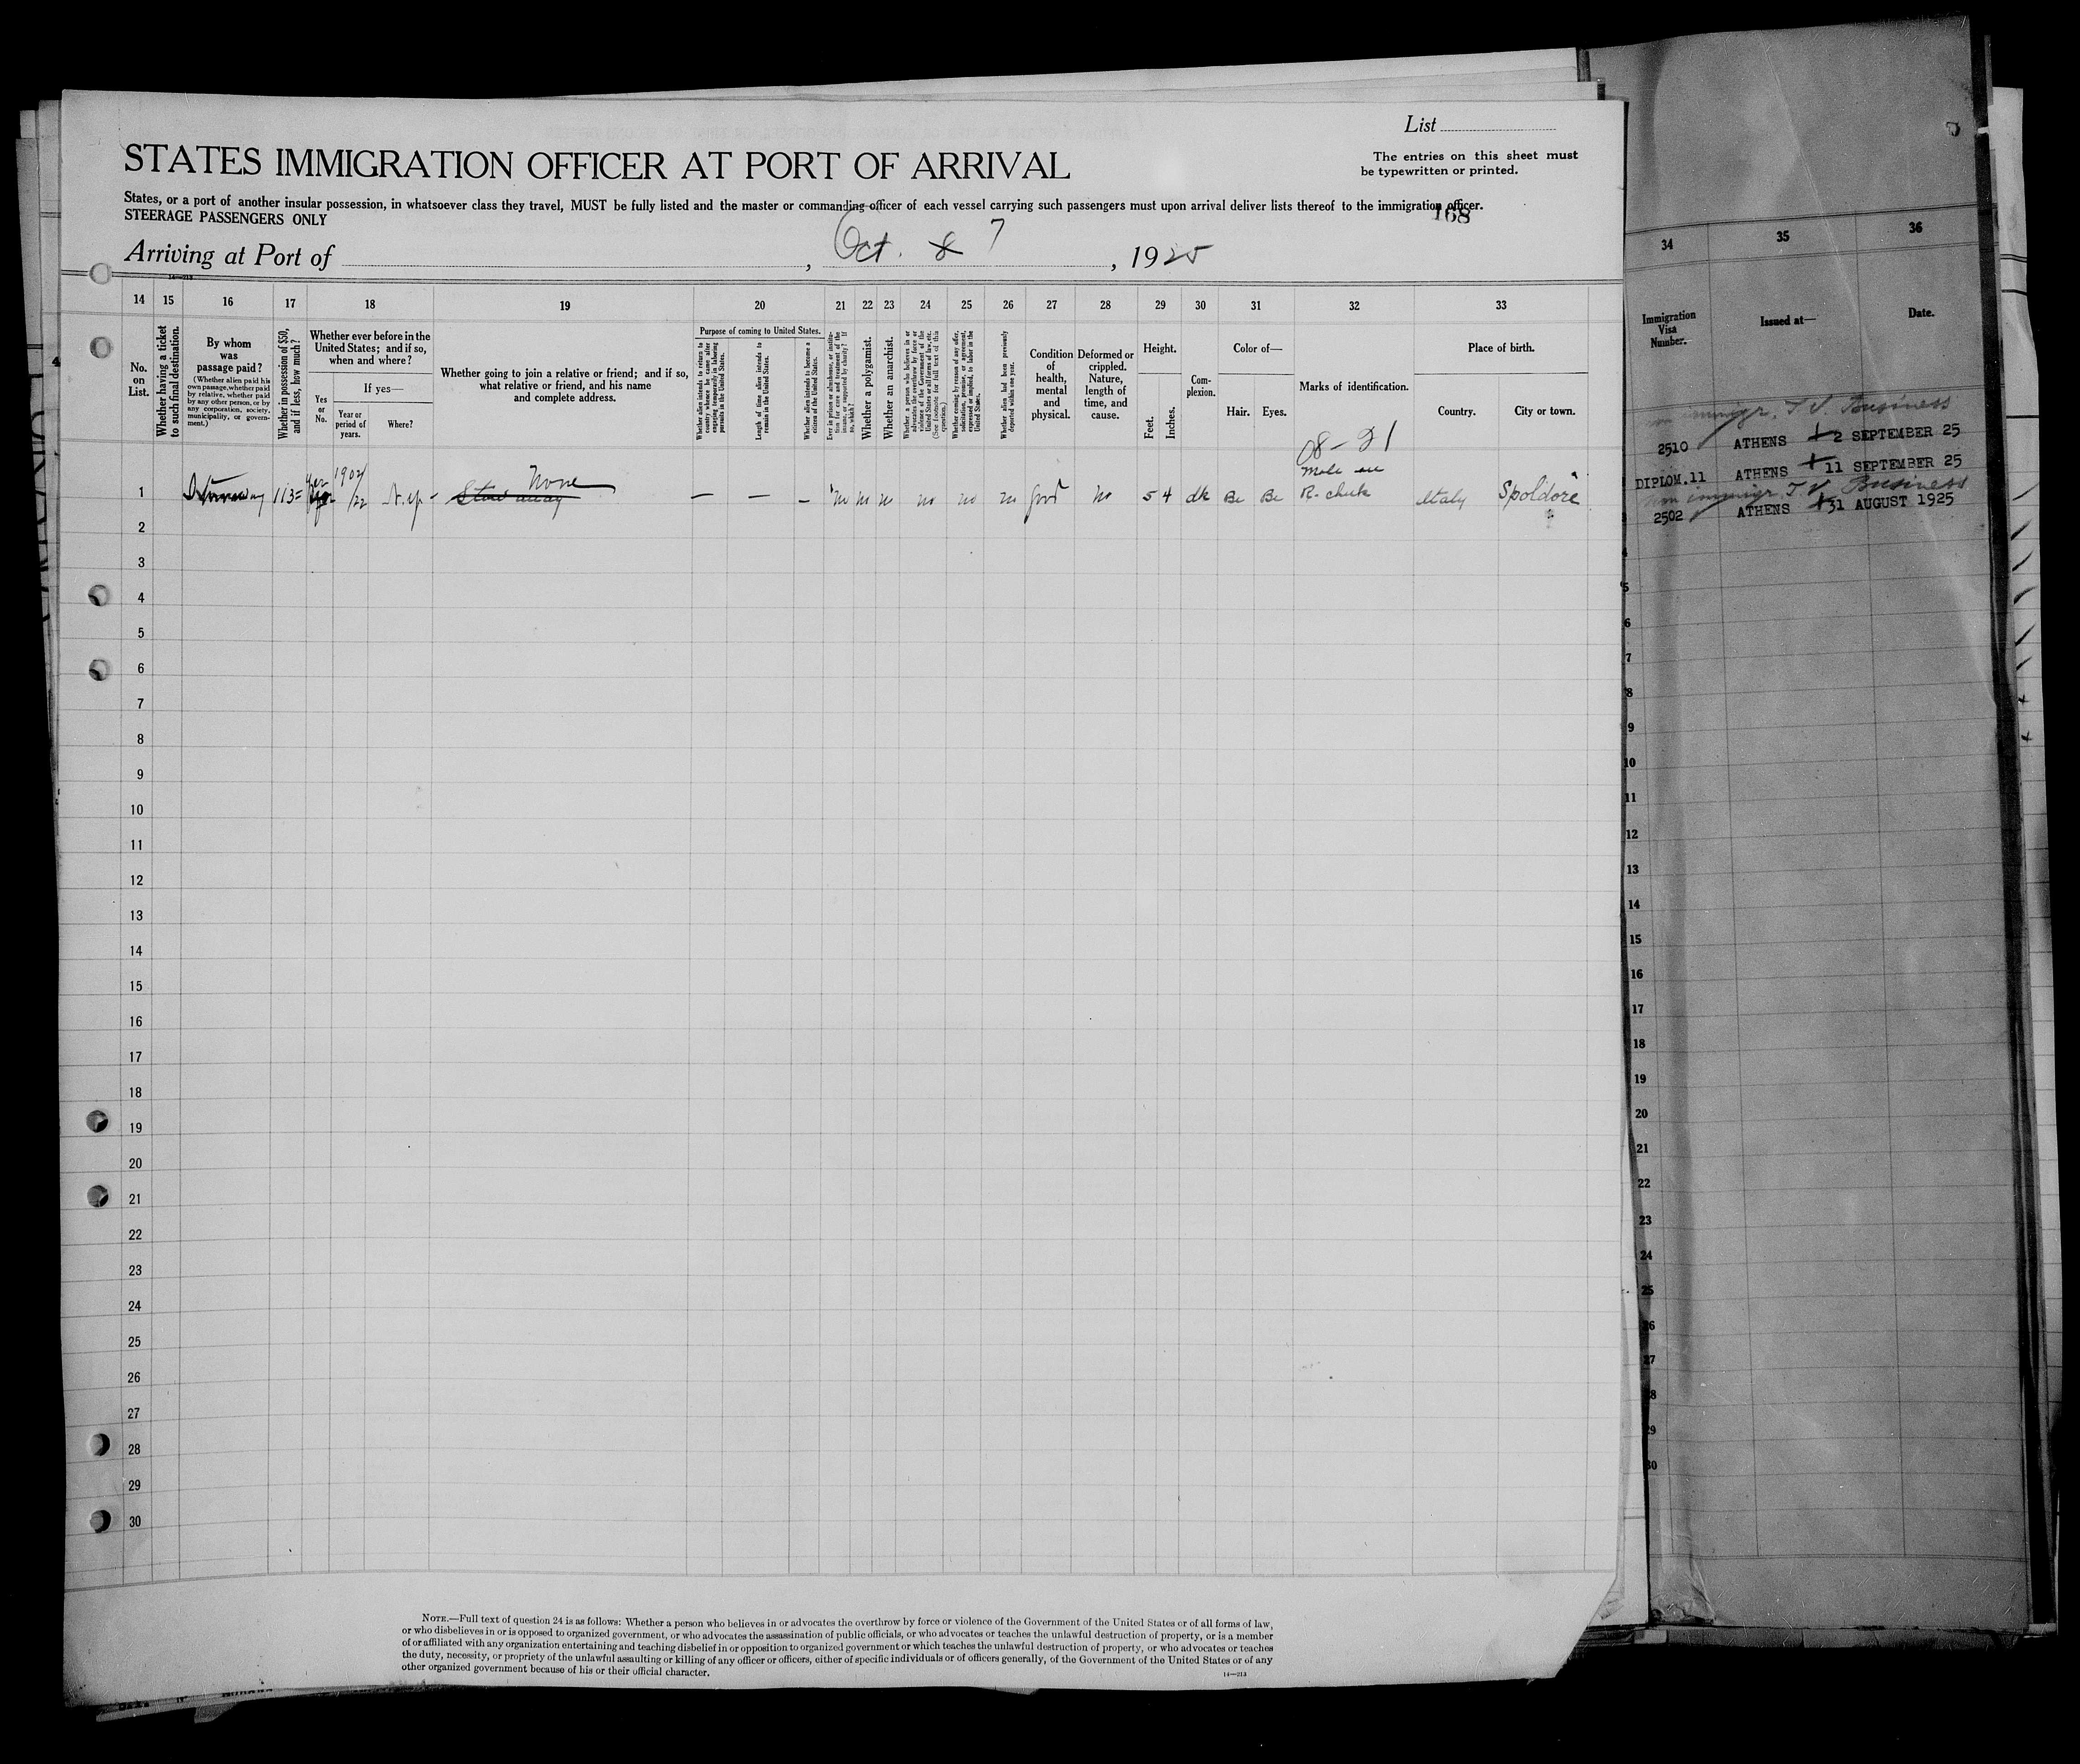 List
STATES IMMIGRATION OFFICER AT PORT OF ARRIVAL
The entries on this sheet must
be typewritten or printed.
States, or a port of another insular possession, in whatsoever class they travel, MUST be fully listed and the master or commanding officer of each vessel carrying such passengers must upon arrival deliver lists thereof to the immigration officer.
STEERAGE PASSENGERS ONLY
168
Arriving at Port of , Oct. 8 7 , 1925
14—213
14 15 16 17 18 19 20 21 22 23 24 25 26 27 28 29 30 31 32 33
No. on List.
Whether having a ticket to such final destination.
By whom was passage paid?
(Whether alien paid his own passage, whether paid by relative, whether paid by any other person, or by any corporation, society, municipality, or government.)
Whether in possession of $50, and if less, how much?
Whether ever before in the United States; and if so, when and where?
If yes—
Yes or No.
Year or period of years.
Where?
Whether going to join a relative or friend; and if so, what relative or friend, and his name and complete address.
Purpose of coming to United States.
Whether alien intends to return to country whence he came after engaging temporarily in laboring pursuits in the United States.
Length of time alien intends to remain in the United States.
Whether alien intends to become a citizen of the United States.
Ever in prison or almshouse, or institution for care and treatment of the insane, or supported by charity? If so, which?
Whether a polygamist.
Whether an anarchist.
Whether a person who believes in or advocates the overthrow by force or violence of the Government of the United States or all forms of law, etc. (See footnote for full text of this question.)
Whether coming by reason of any offer, solicitation, promise, or agreement, expressed or implied, to labor in the United States.
Whether alien had been previously deported within one year.
Condition of health, mental and physical.
Deformed or crippled. Nature, length of time, and cause.
Height.
Feet.
Inches.
Complexion.
Color of—
Hair.
Eyes.
Marks of identification.
Place of birth.
Country.
City or town.
08-21
1 113= 1902/22 None Stowaway — — — no no no no no no good no 5 4 dk Br Br Mole on R. cheek Italy Spoldore
2
3
4
5
6
7
8
9
10
11
12
13
14
15
16
17
18
19
20
21
22
23
24
25
26
27
28
29
30
NOTE.—Full text of question 24 is as follows: Whether a person who believes in or advocates the overthrow by force or violence of the Government of the United States or of all forms of law,
or who disbelieves in or is opposed to organized government, or who advocates the assassination of public officials, or who advocates or teaches the unlawful destruction of property, or is a member
of or affiliated with any organization entertaining and teaching disbelief in or opposition to organized government or which teaches the unlawful destruction of property, or who advocates or teaches
the duty, necessity, or propriety of the unlawful assaulting or killing of any officer or officers, either of specific individuals or of officers generally, of the Government of the United States or of any
other organized government because of his or their official character.
14—213
34 35 36
Immigration Visa Number.
Issued at—
Date.
immigr. T V. Business
2510 ATHENS 2 SEPTEMBER 25
DIPLOM.11 ATHENS 11 SEPTEMBER 25
immigr. T V Business
2502 ATHENS 31 AUGUST 1925
4
5
6
7
8
9
10
11
12
13
14
15
16
17
18
19
20
21
22
23
24
25
26
27
28
29
30